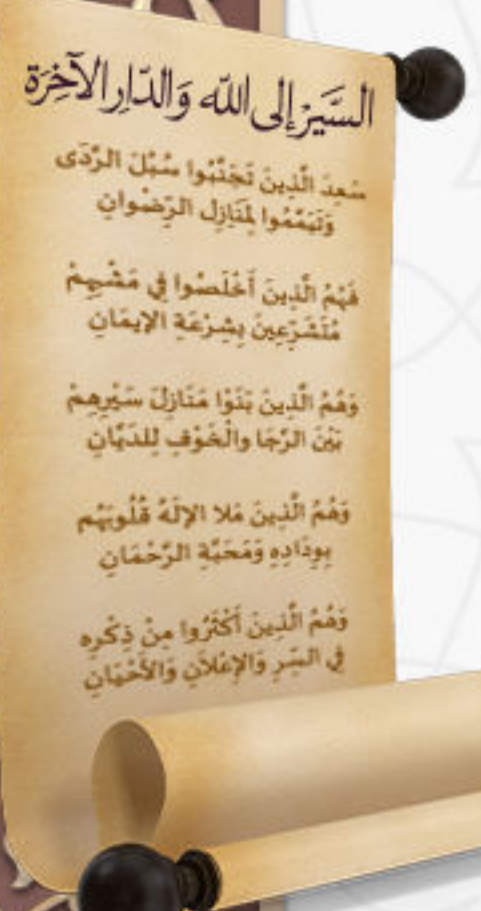 السَّيْرُ إِلى اللّٰه وَالدّارِ الآخِرَة
سَعِدَ الَّذِينَ تَجَنَّبُوا سُبُلَ الرَّدَى
وَتَيَمَّمُوا لِمَنَازِلِ الرِّضْوانِ
فَهُمُ الَّذِينَ أَخْلَصُوا فِي مَشْيِهِمْ
مُتَشَرِّعِينَ بِشِرْعَةِ الإِيمَانِ
وَهُمُ الَّذِينَ بَنَوْا مَنَازِلَ سَيْرِهِمْ
بَيْنَ الرَّجَا والْخَوْفِ لِلدَيَّانِ
وَهُمُ الَّذِينَ مَلا الإِلَهُ قُلُوبَهُم
بِوِدَادِهِ وَمَحَبَّةِ الرَّحْمَانِ
وَهُمُ الَّذِينَ أَكْثَرُوا مِنْ ذِكْرِهِ
فِي السِّرِ وَالإِعْلاَنِ وَالأَحْيَانِ